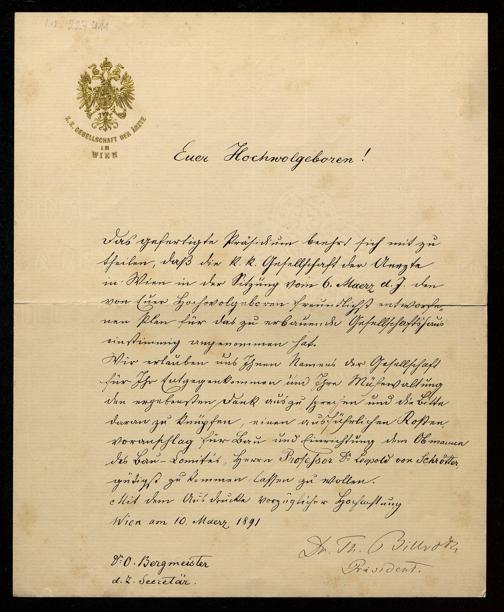 K.K. GESELLSCHAFT DER ÄRZTE
IN
WIEN
Euer Hochwolgeboren!
Das gefertigte Präsidium beehrt sich mit zu
theilen, daß die k. k. Gesellschaft der Aerzte
in Wien in der Sitzung vom 6. Maerz d. J. den
von Euer Hochwolgeboren freundlichst entworfe-
nen Plan für das zu erbauende Gesellschaftshaus
einstimmig angenommen hat.
Wir erlauben uns Ihnen Namens der Gesellschaft
für Ihr Entgegenkommen und Ihre Mühewaltung
den ergebensten Dank auszusprechen und die Bitte
daran zu knüpfen, einen ausführlichen Kosten
voranschlag für Bau und Einrichtung dem Obmanne
des Bau-Comités, Herrn Professor Dr Leopold von Schrötter
gütigst zu kommen lassen zu wollen.
Mit dem Ausdrucke vorzüglicher Hochachtung
Wien am 10. Maerz 1891
Dr. Th. Billroth
Präsident.
Dr O. Bergmeister
d. Z. Secretär.